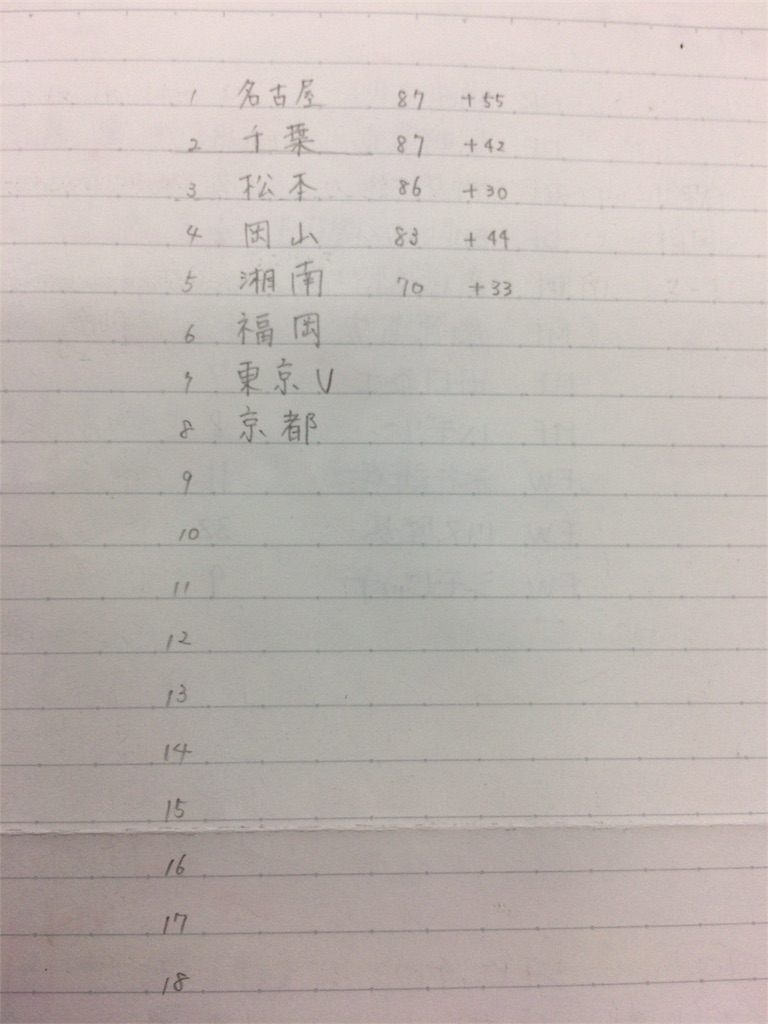 1 名古屋 87 +55
2 千葉 87 +42
3 松本 86 +30
4 岡山 83 +44
5 湘南 70 +33
6 福岡
7 東京V
8 京都
9
10
11
12
13
14
15
16
17
18